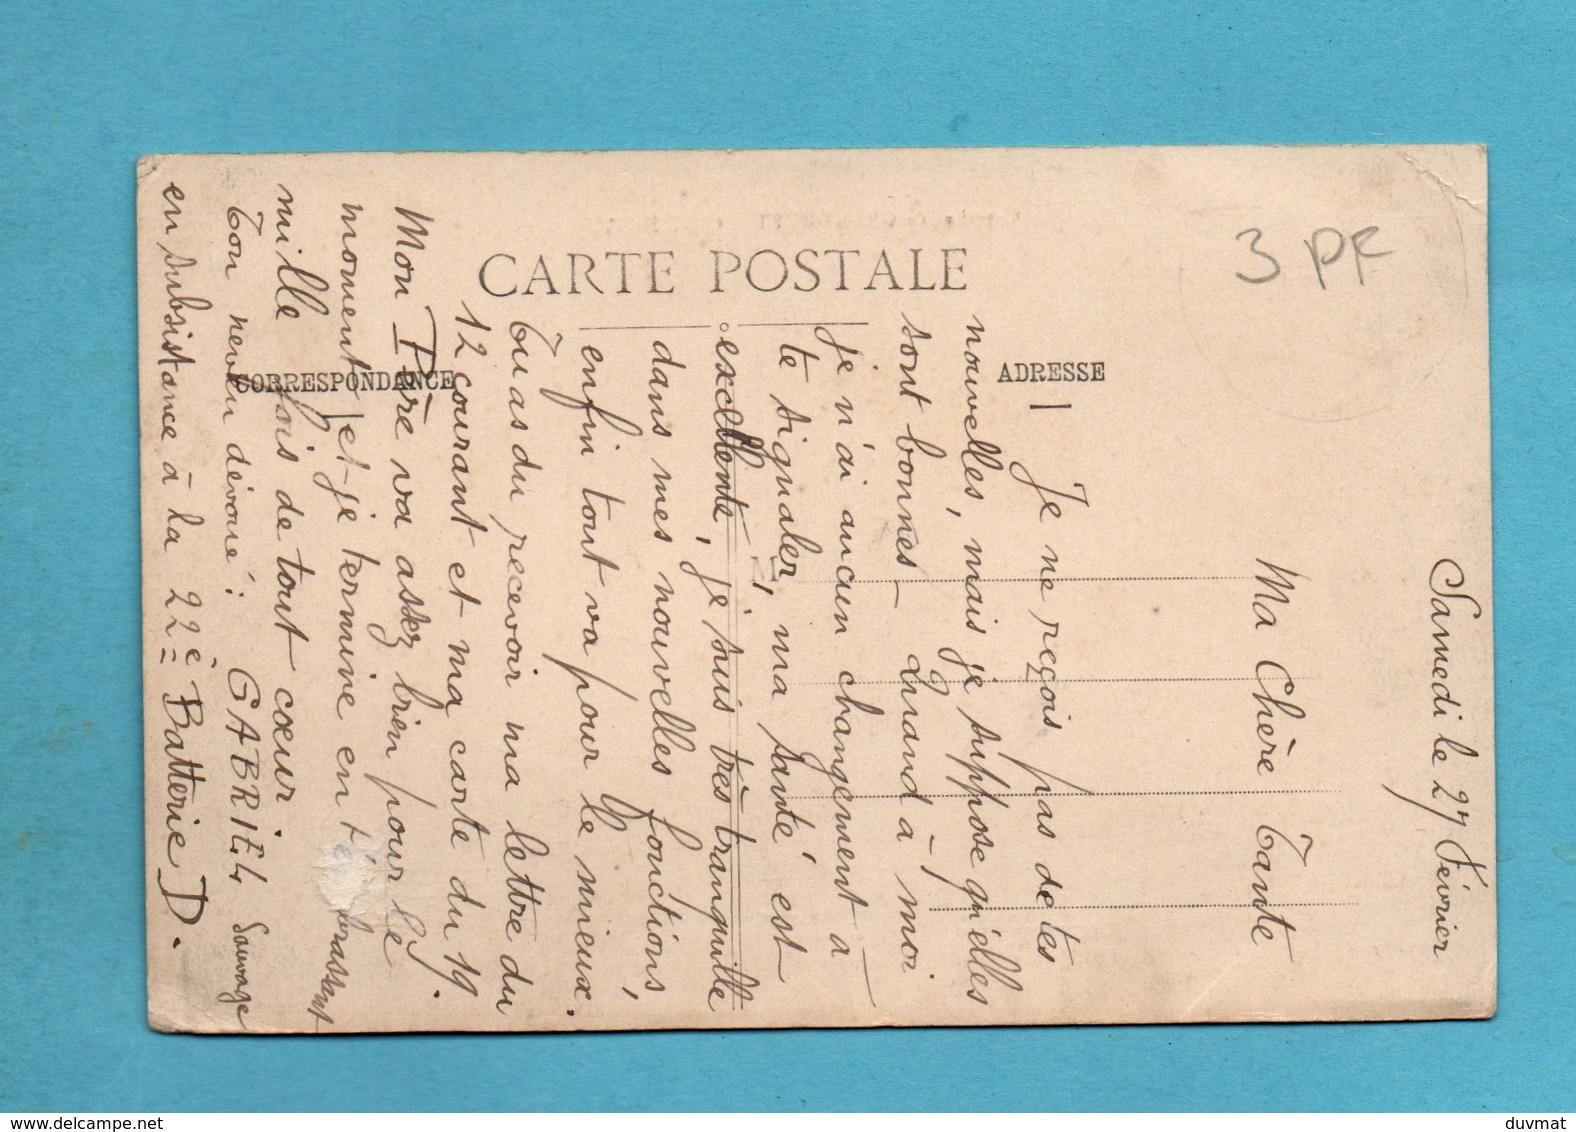 CARTE POSTALE
CORRESPONDANCE
ADRESSE
3 PF
Samedi le 27 Février
Ma Chère Tante
Je ne reçois pas de tes
nouvelles, mais je suppose qu'elles
sont bonnes - Quand à moi
je n'ai aucun changement à
te signaler, ma santé est
excellente, je suis très tranquille
dans mes nouvelles fonctions,
enfin tout va pour le mieux.
Tu as du recevoir ma lettre du
12 courant et ma carte du 19.
Mon Père va assez bien pour le
moment et je termine en t'embrassant
mille fois de tout cœur
Ton neveu dévoué: GABRIEL Sauvage
en subsistance à la 22e Batterie D.
M
© delcampe.net
duvmat